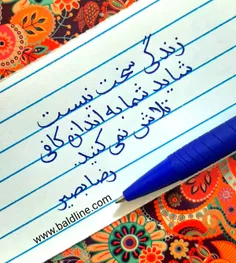 زندگی سخت نیست
شاید شما به اندازه کافی
تلاش نمی کنید.
رضا بصیر
www.baldline.com